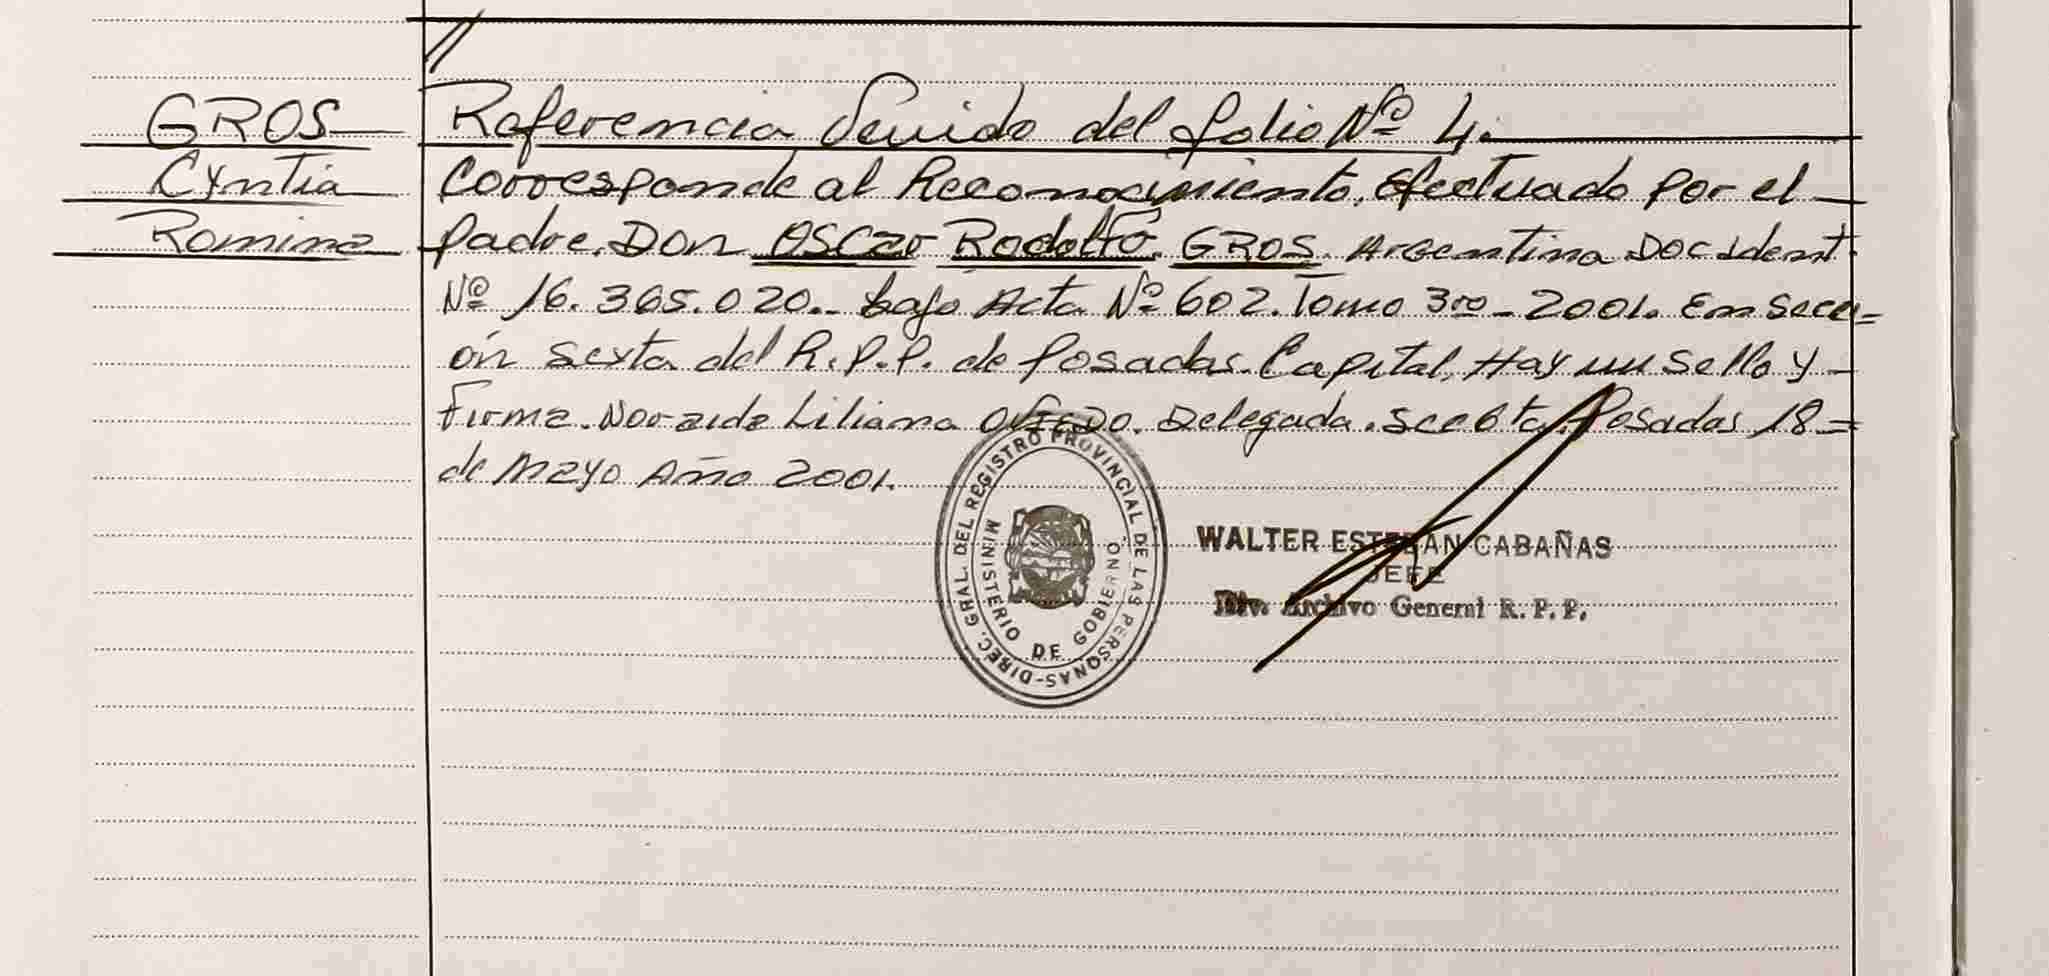 //
GROS
Cyntia
Romina
Referencia del folio Nº 4.
Corresponde al Reconocimiento. Efectuado por el
padre. Don OSCar Rodolfo. GROS. Argentina Doc Ident.
Nº 16.365.020.. bajo Acta Nº 602. Tomo 3ro - 2001. En Secci=
ón Sexta del R.P.P. de Posadas. Capital. Hay un Sello y
Firma. Noraida Liliana Delegada. Scc 6ta. Posadas 18=
de Mayo Año 2001.
DIREC. GRAL. DEL REGISTRO PROVINCIAL DE LAS PERSONAS-
MINISTERIO DE GOBIERNO
WALTER ESTEBAN CABAÑAS
JEFE
Div. Archivo General R. P. P.